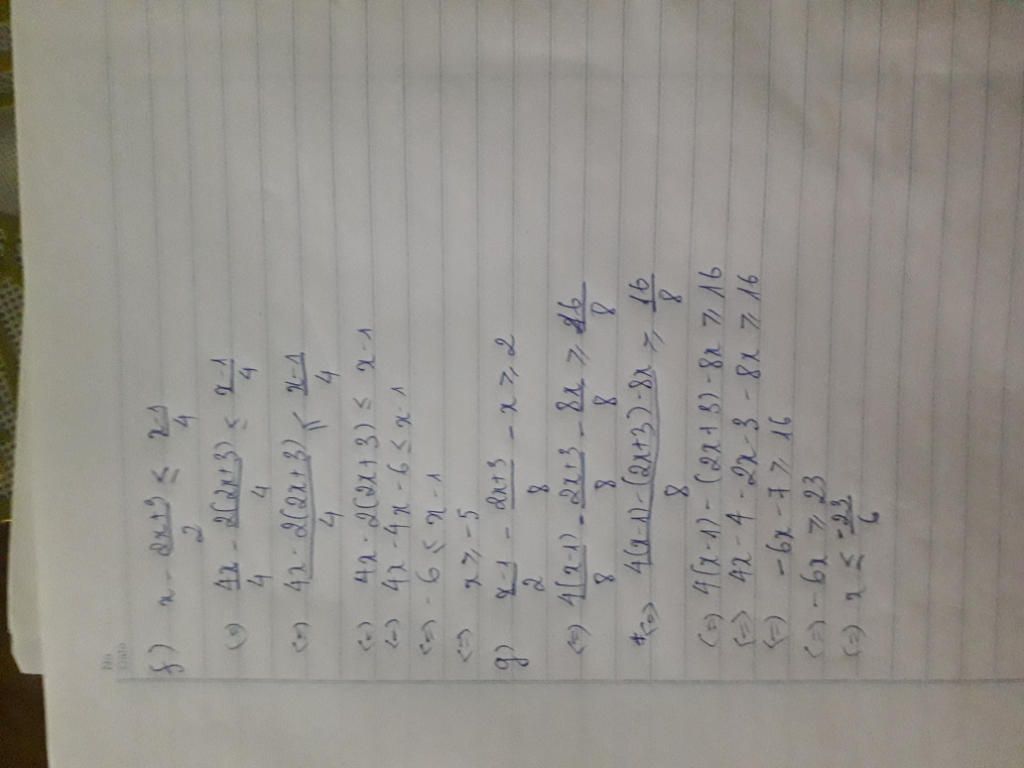 f) x - (2x+3)/2 ≤ (x-1)/4
(=) 4x/4 - 2(2x+3)/4 ≤ (x-1)/4
(=) (4x - 2(2x+3))/4 ≤ (x-1)/4
(=) 4x - 2(2x+3) ≤ x-1
(=) 4x - 4x - 6 ≤ x-1
(=) -6 ≤ x-1
(=) x ≥ -5
g) (x-1)/2 - (2x+3)/8 - x ≥ 2
(=) 4(x-1)/8 - (2x+3)/8 - 8x/8 ≥ 16/8
(=) (4(x-1) - (2x+3) - 8x)/8 ≥ 16/8
(=) 4(x-1) - (2x+3) - 8x ≥ 16
(=) 4x - 4 - 2x - 3 - 8x ≥ 16
(=) -6x - 7 ≥ 16
(=) -6x ≥ 23
(=) x ≤ -23/6